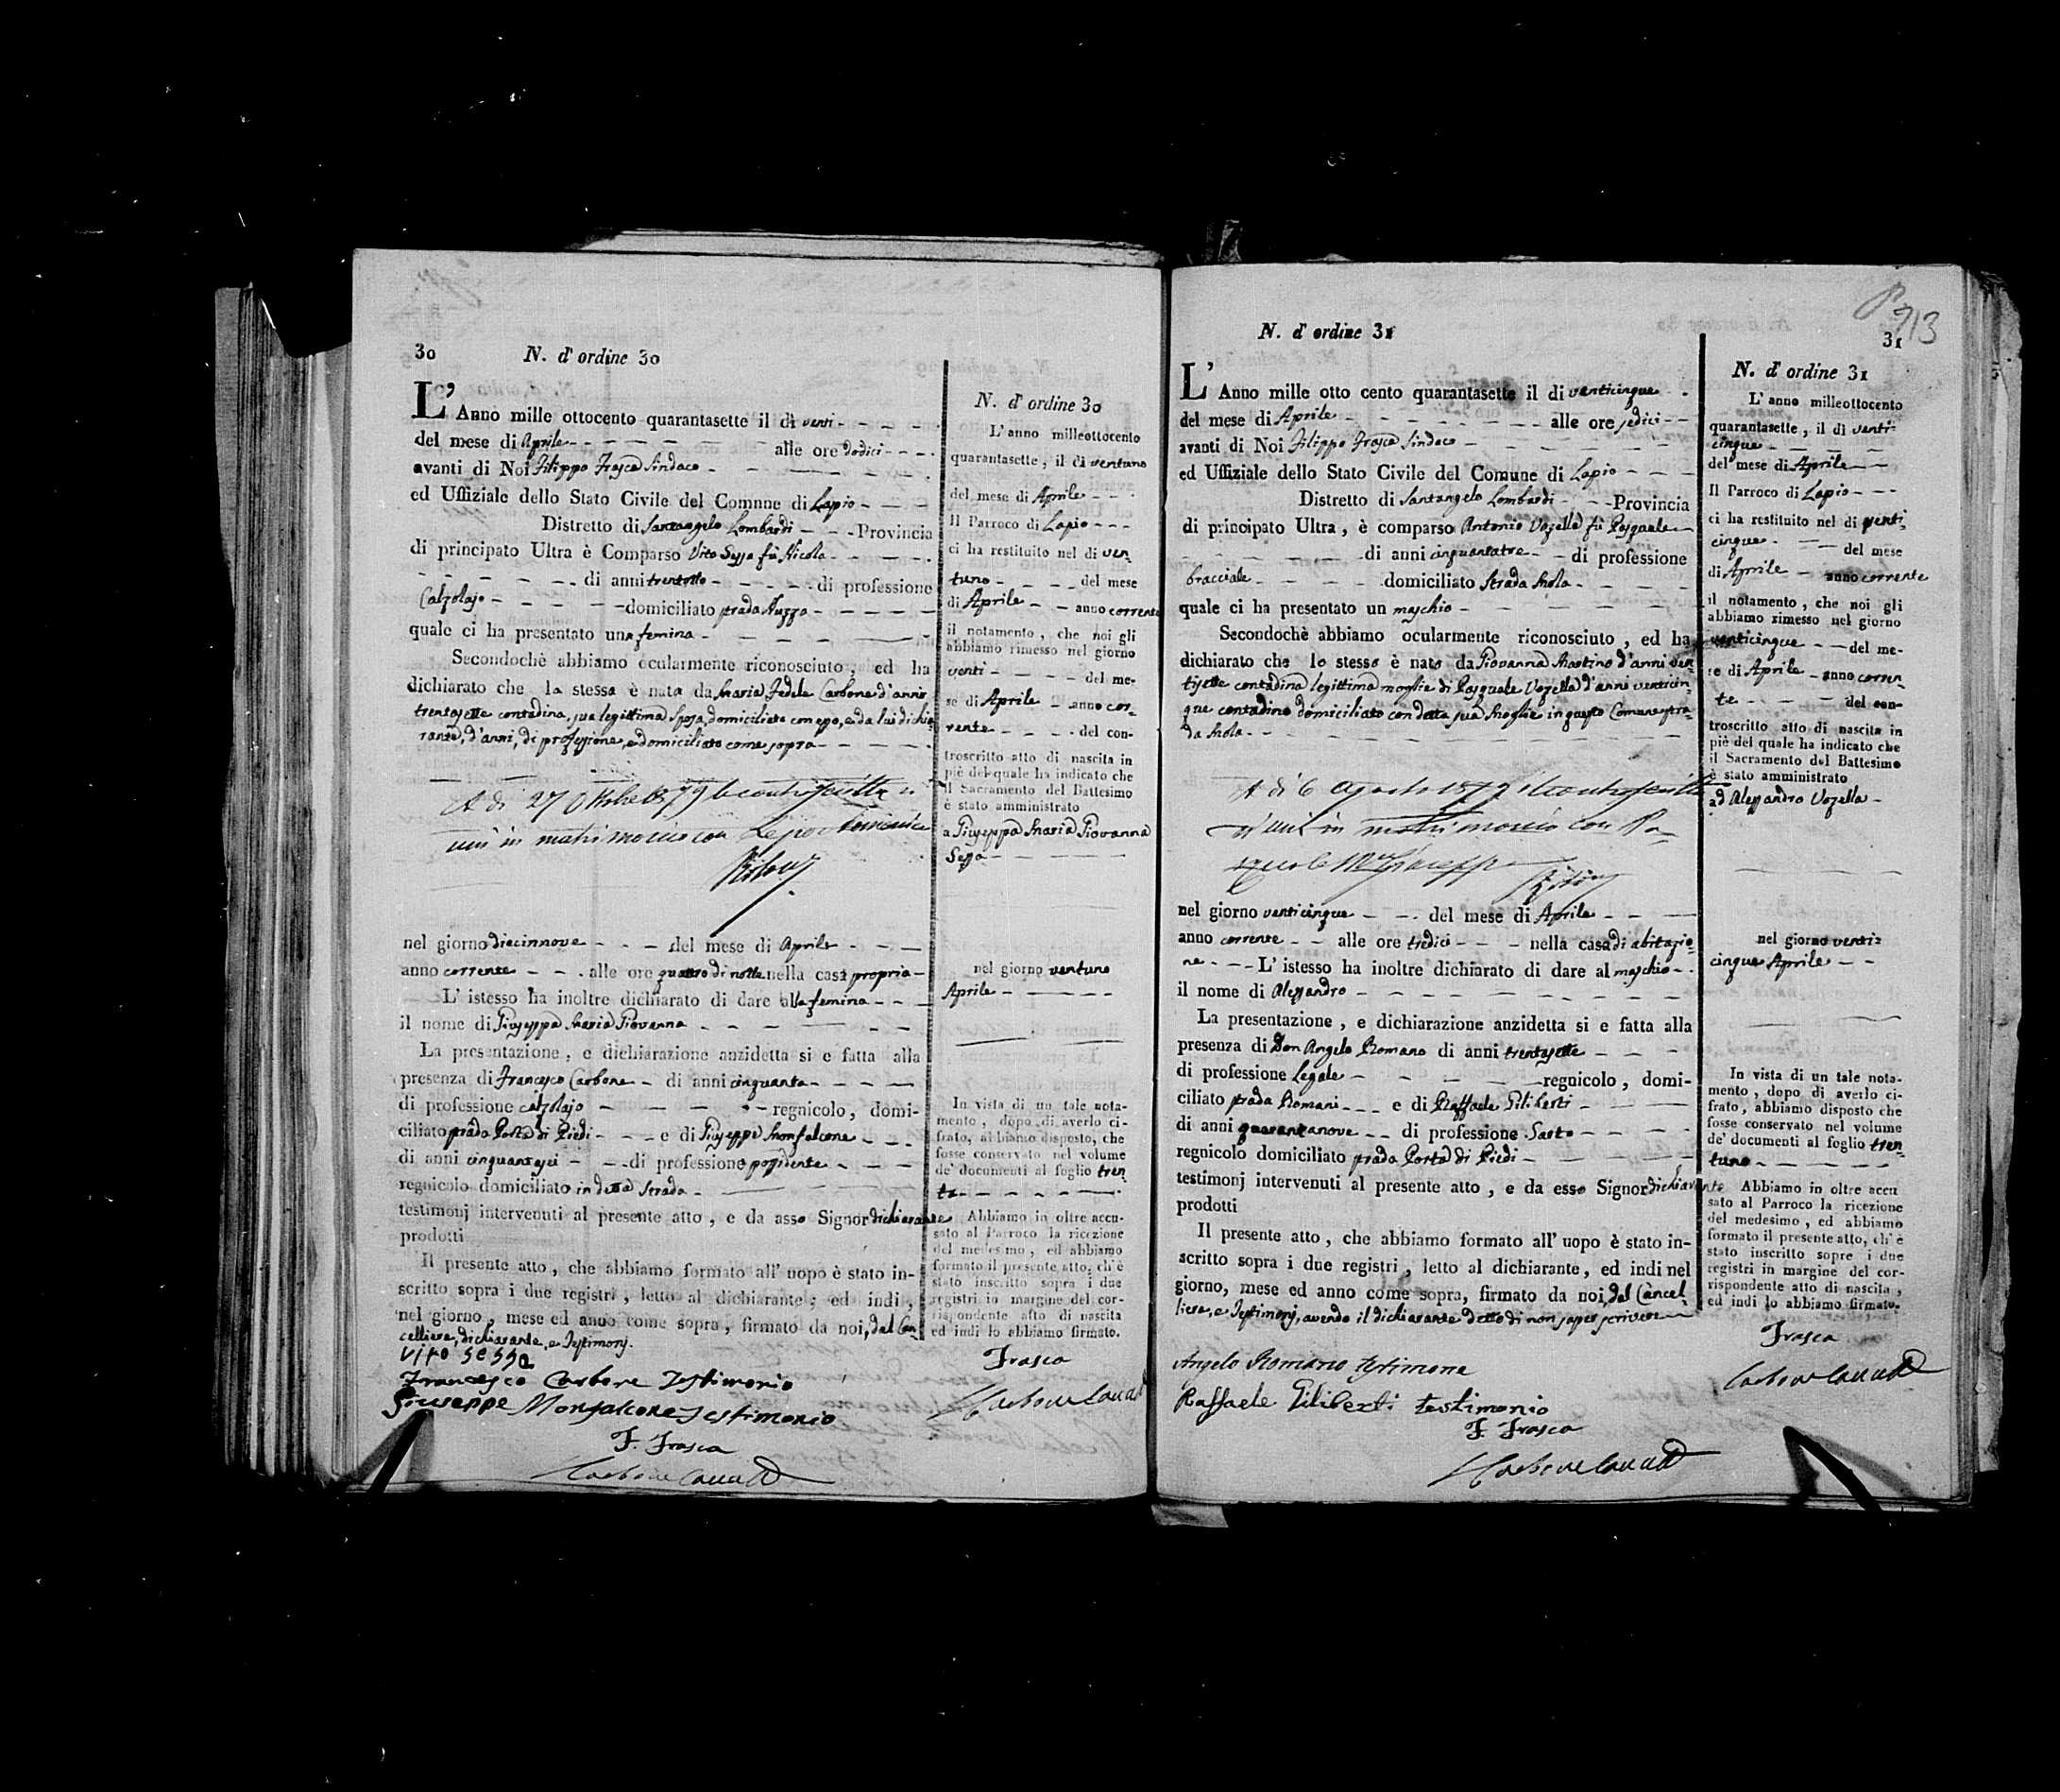 30 N. d' ordine 30
L' Anno mille ottocento quarantasette il di venti
del mese di Aprile alle ore dodici
avanti di Noi Filippo Frasca Sindaco
ed Uffiziale dello Stato Civile del Comnne di Lapio
Distretto di Santangelo Lombardi Provincia
di principato Ultra è Comparso Vito Sessa fù Nicola
di anni trentotto di professione
Calzolajo domiciliato strada Nuzzo
quale ci ha presentato una femina
Secondochè abbiamo ocularmente riconosciuto, ed ha
dichiarato che la stessa è nata da Maria Fedele Carbone d'anni
trentasette contadina, sua legittima sposa, domiciliata con esso, e da lui dichia
rante, d'anni, di professione, e domiciliato come sopra
A di 27 Ottobre 1879 la controscritta si
unì in matrimonio con Lepore
nel giorno diecinnove del mese di Aprile
anno corrente alle ore quattro di notte nella casa propria
L' istesso ha inoltre dichiarato di dare alla femina
il nome di Giuseppa Maria Giovanna
La presentazione, e dichiarazione anzidetta si e fatta alla
presenza di Francesco Carbone di anni cinquanta
di professione calzolajo regnicolo, domi-
ciliato strada Porta di Piedi e di Giuseppe Monfalcone
di anni cinquantasei di professione possidente
regnicolo domiciliato in detta Strada
testimonj intervenuti al presente atto, e da asso Signor dichiarante
prodotti
Il presente atto, che abbiamo formato all' uopo è stato in-
scritto sopra i due registri, letto al dichiarante, ed indi,
nel giorno, mese ed anno come sopra, firmato da noi, dal Can-
celliere, dichiarante, e Testimonj.
Vito Sessa
Francesco Carbone Testimonio
Giuseppe Monfalcone Testimonio
F. Frasca
Carbone
N. d' ordine 30
L' anno milleottocento
quarantasette, il di ventuno
del mese di Aprile
Il Parroco di Lapio
ci ha restituito nel di ven-
tuno del mese
di Aprile anno corrente
il notamento, che noi gli
abbiamo rimesso nel giorno
venti del me-
se di Aprile anno cor-
rente del con-
troscritto atto di nascita in
piè del quale ha indicato che
il Sacramento del Battesimo
è stato amministrato
a Giuseppa Maria Giovanna
Sessa
nel giorno ventuno
Aprile
In vista di un tale nota-
mento, dopo di averlo ci-
frato, abbiamo disposto, che
fosse conservato nel volume
de' documenti al foglio tren-
ta
Abbiamo in oltre accu-
sato al Parroco la ricezione
del medesimo, ed abbiamo
formato il presente atto, ch'è
stato inscritto sopra i due
registri in margine del cor-
rispondente atto di nascita
ed indi lo abbiamo firmato.
Frasca
Carbone
N. d' ordine 31
L' Anno mille otto cento quarantasette il di venticinque
del mese di Aprile alle ore sedici
avanti di Noi Filippo Frasca Sindaco
ed Uffiziale dello Stato Civile del Comune di Lapio
Distretto di Santangelo Lombardi Provincia
di principato Ultra, è comparso Antonio Vozella fù Pasquale
di anni cinquantatre di professione
bracciale domiciliato Strada Mola
quale ci ha presentato un maschio
Secondochè abbiamo ocularmente riconosciuto, ed ha
dichiarato che lo stesso è nato da Giovanna Mastino d'anni ven-
tisette contadina legittima moglie di Pasquale Vozella d'anni venticin-
que contadino domiciliato con detta sua Moglie in questo Comune stra-
da Mola
A di 6 Agosto 1872 il controscritto
si unì in matrimonio con Pa-
squale
nel giorno venticinque del mese di Aprile
anno corrente alle ore tredici nella casa di abitazio-
ne L' istesso ha inoltre dichiarato di dare al maschio
il nome di Alessandro
La presentazione, e dichiarazione anzidetta si e fatta alla
presenza di Don Angelo Romano di anni trentasette
di professione legale regnicolo, domi-
ciliato strada Romani e di Raffaele Giliberti
di anni quarantanove di professione Sarto
regnicolo domiciliato strada Porta di Piedi
testimonj intervenuti al presente atto, e da esso Signor dichiarante
prodotti
Il presente atto, che abbiamo formato all' uopo è stato in-
scritto sopra i due registri, letto al dichiarante, ed indi nel
giorno, mese ed anno come sopra, firmato da noi, dal Cancel-
liere, e Testimonj, avendo il dichiarante detto di non saper scrivere
Angelo Romano testimone
Raffaele Giliberti testimonio
F. Frasca
Carbone
713
31
N. d' ordine 31
L' anno milleottocento
quarantasette, il di venti-
cinque
del mese di Aprile
Il Parroco di Lapio
ci ha restituito nel di venti-
cinque del mese
di Aprile anno corrente
il notamento, che noi gli
abbiamo rimesso nel giorno
venticinque del me-
se di Aprile anno corren-
te del con-
troscritto atto di nascita in
piè del quale ha indicato che
il Sacramento del Battesimo
è stato amministrato
ad Alessandro Vozella
nel giorno venti-
cinque Aprile
In vista di un tale nota-
mento, dopo di averlo ci-
frato, abbiamo disposto che
fosse conservato nel volume
de' documenti al foglio tren-
tuno
Abbiamo in oltre accu
sato al Parroco la ricezione
del medesimo, ed abbiamo
formato il presente atto, ch'è
stato inscritto sopre i due
registri in margine del cor-
rispondente atto di nascita,
ed indi lo abbiamo firmato.
Frasca
Carbone